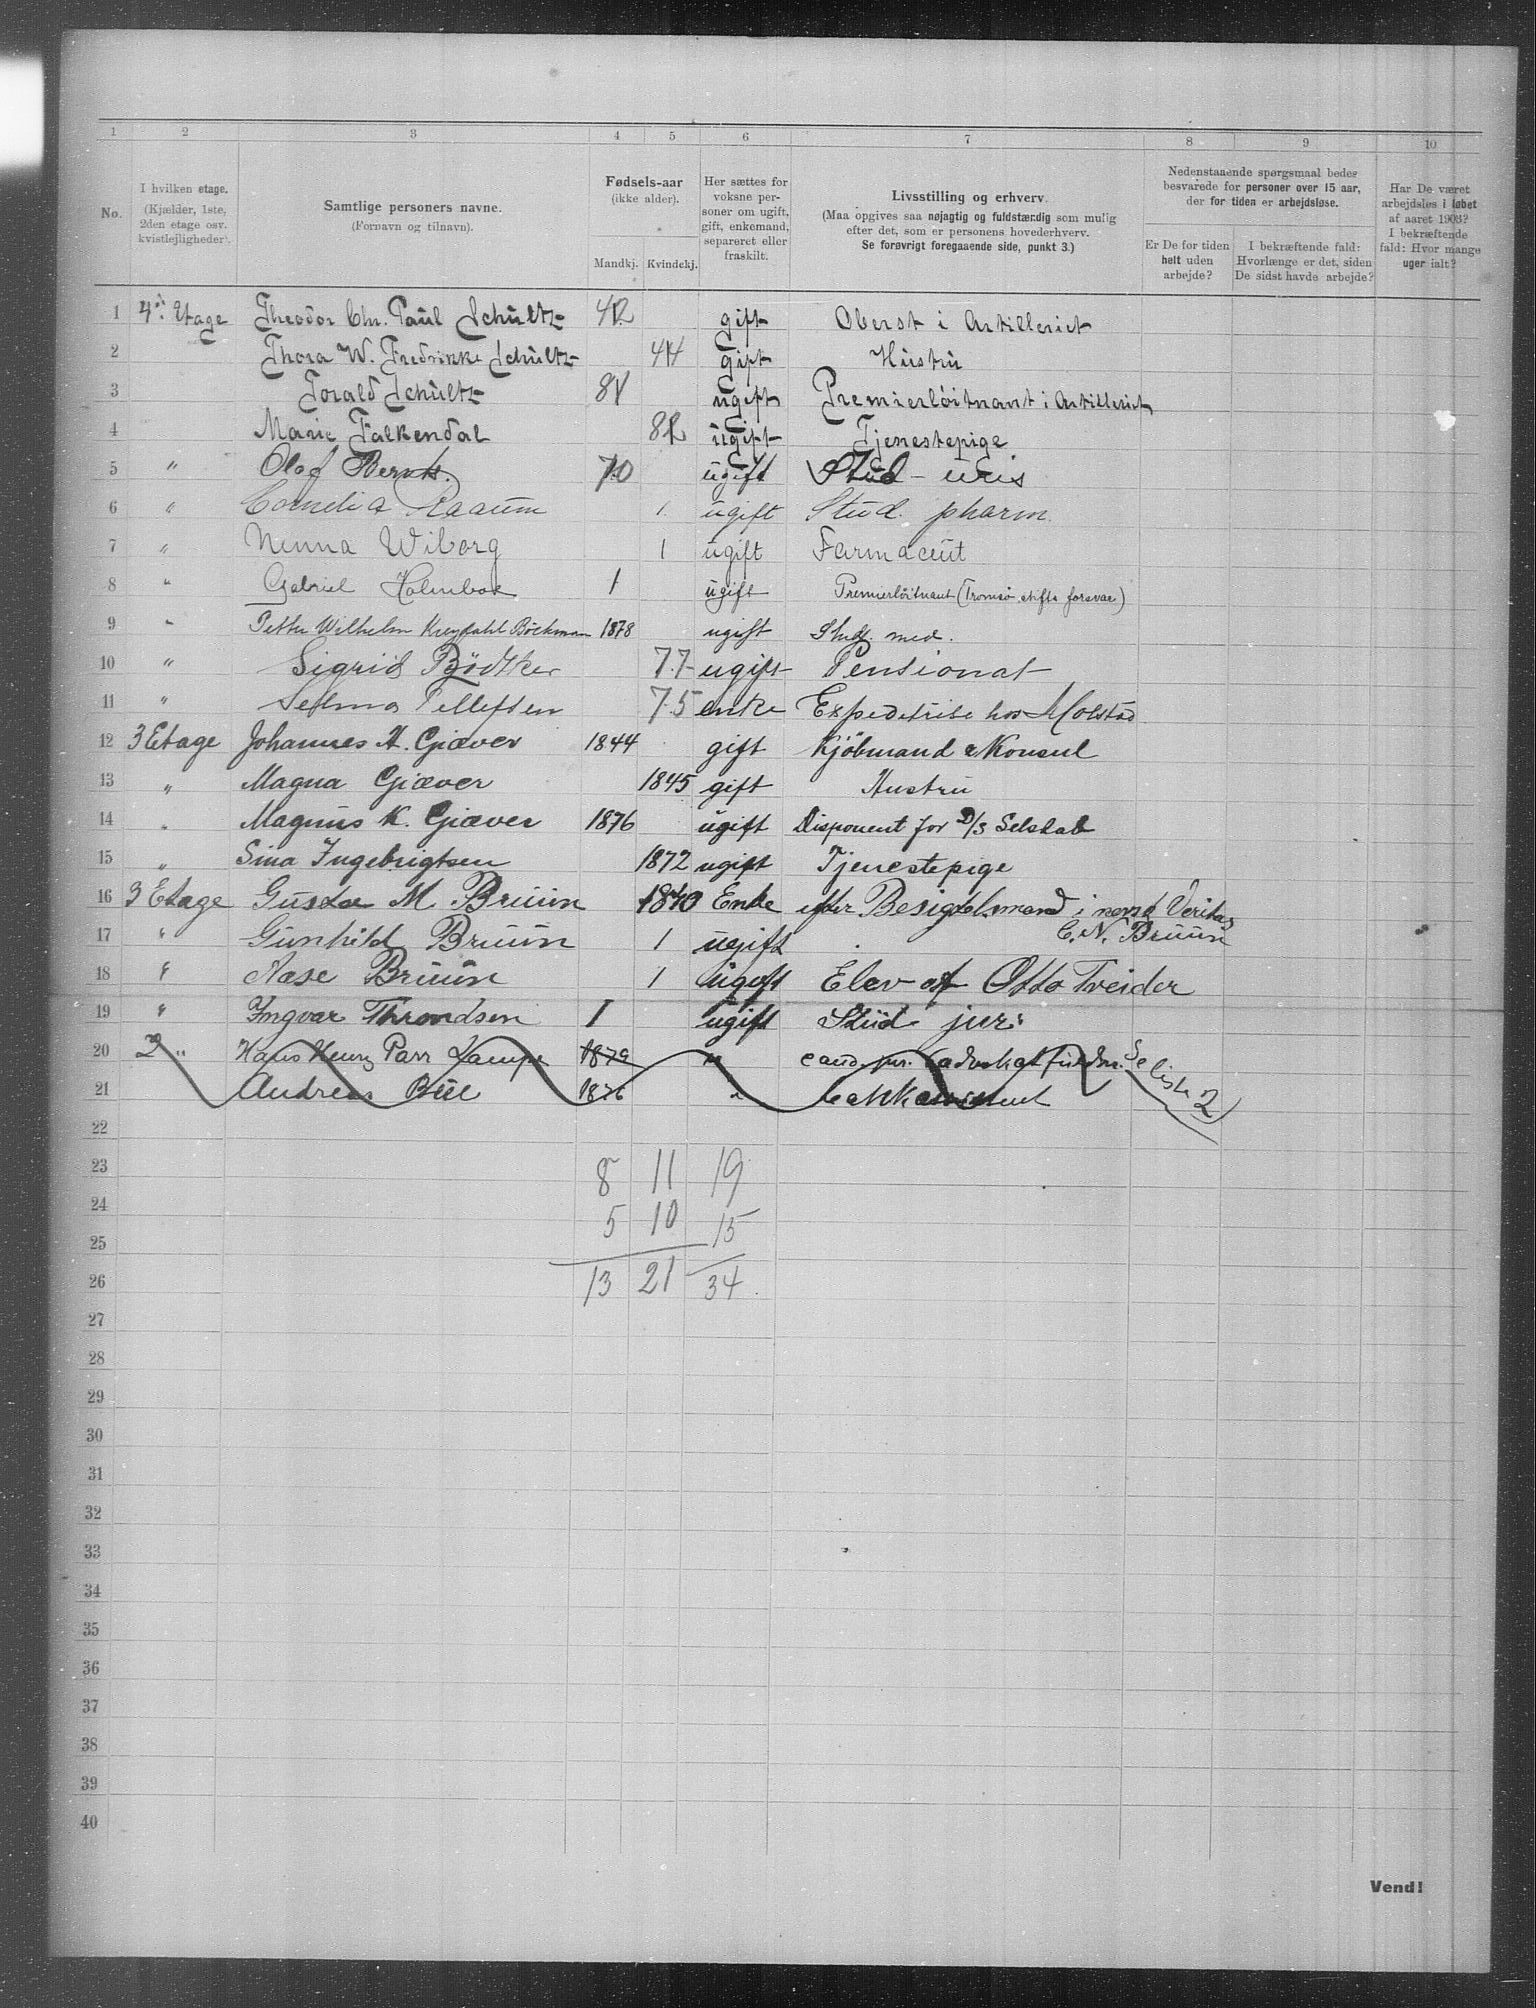 1 2 3 4 5 6 7 8 9 10
No.
I hvilken etage.
(Kjælder, 1ste,
2den etage osv.
kvistlejligheder).
Samtlige personers navne.
(Fornavn og tilnavn).
Fødsels-aar
(ikke alder).
Mandkj. Kvindekj.
Her sættes for
voksne per-
soner om ugift,
gift, enkemand,
separeret eller
fraskilt.
Livsstilling og erhverv.
(Maa opgives saa nøjagtig og fuldstændig som mulig
efter det, som er personens hovederhverv.
Se forøvrigt foregaaende side, punkt 3.)
Nedenstaaende spørgsmaal bedes
besvarede for personer over 15 aar,
der for tiden er arbejdsløse.
Er De for tiden
helt uden
arbejde?
I bekræftende fald:
Hvorlænge er det, siden
De sidst havde arbejde?
Har De været
arbejdsløs i løbet
af aaret 1903?
I bekræftende
fald: Hvor mange
uger ialt?
1 4de Etage Theodor Chr. Paul Schultz 42 gift Oberst i Artilleriet
2 Thora W. Fredrikke Schultz 44 gift Hustru
3 Torald Schultz 81 ugift Premierløitnant i Artilleriet
4 Marie Falkendal 82 ugift Tjenestepige
5 " Olaf 70 ugift Stud
6 " Cornelia Raaum 1 ugift Stud. pharm.
7 " Nenna Wiborg 1 ugift Farmaceut
8 " Gabriel Holmboe 1 ugift Premierløitnant (Tromsø stifts forsvar)
9 " Petter Wilhelm Kreydahl Bøckman 1878 ugift Stud. med.
10 " Sigrid Bödtker 77 ugift Pensionat
11 " Selma Tellefsen 75 enke Expeditrise hos Molstad
12 3 Etage Johannes H. Giæver 1844 gift Kjöbmand & Konsul
13 " Magna Giæver 1845 gift Hustru
14 " Magnus K. Giæver 1876 ugift Disponent for D/S Selskab
15 " Sina Ingebrigtsen 1872 ugift Tjenestepige
16 3 Etage Gusta M. Bruun 1840 Enke efter Besigtelsmand i norsk Veritas
C. N. Bruun
17 " Gunhild Bruun 1 ugift
18 " Aase Bruun 1 ugift Elev af Otto Treider
19 " Ingvar Throndsen 1 ugift Stud jur:
20 2 " Hans Henry Parr 1879 " cand. jur.
Se
liste 2
21 Andreas Bue 1876 "
22
23 8 11 19
24 5 10 15
25
26 13 21 34
27
28
29
30
31
32
33
34
35
36
37
38
39
40
Vend!